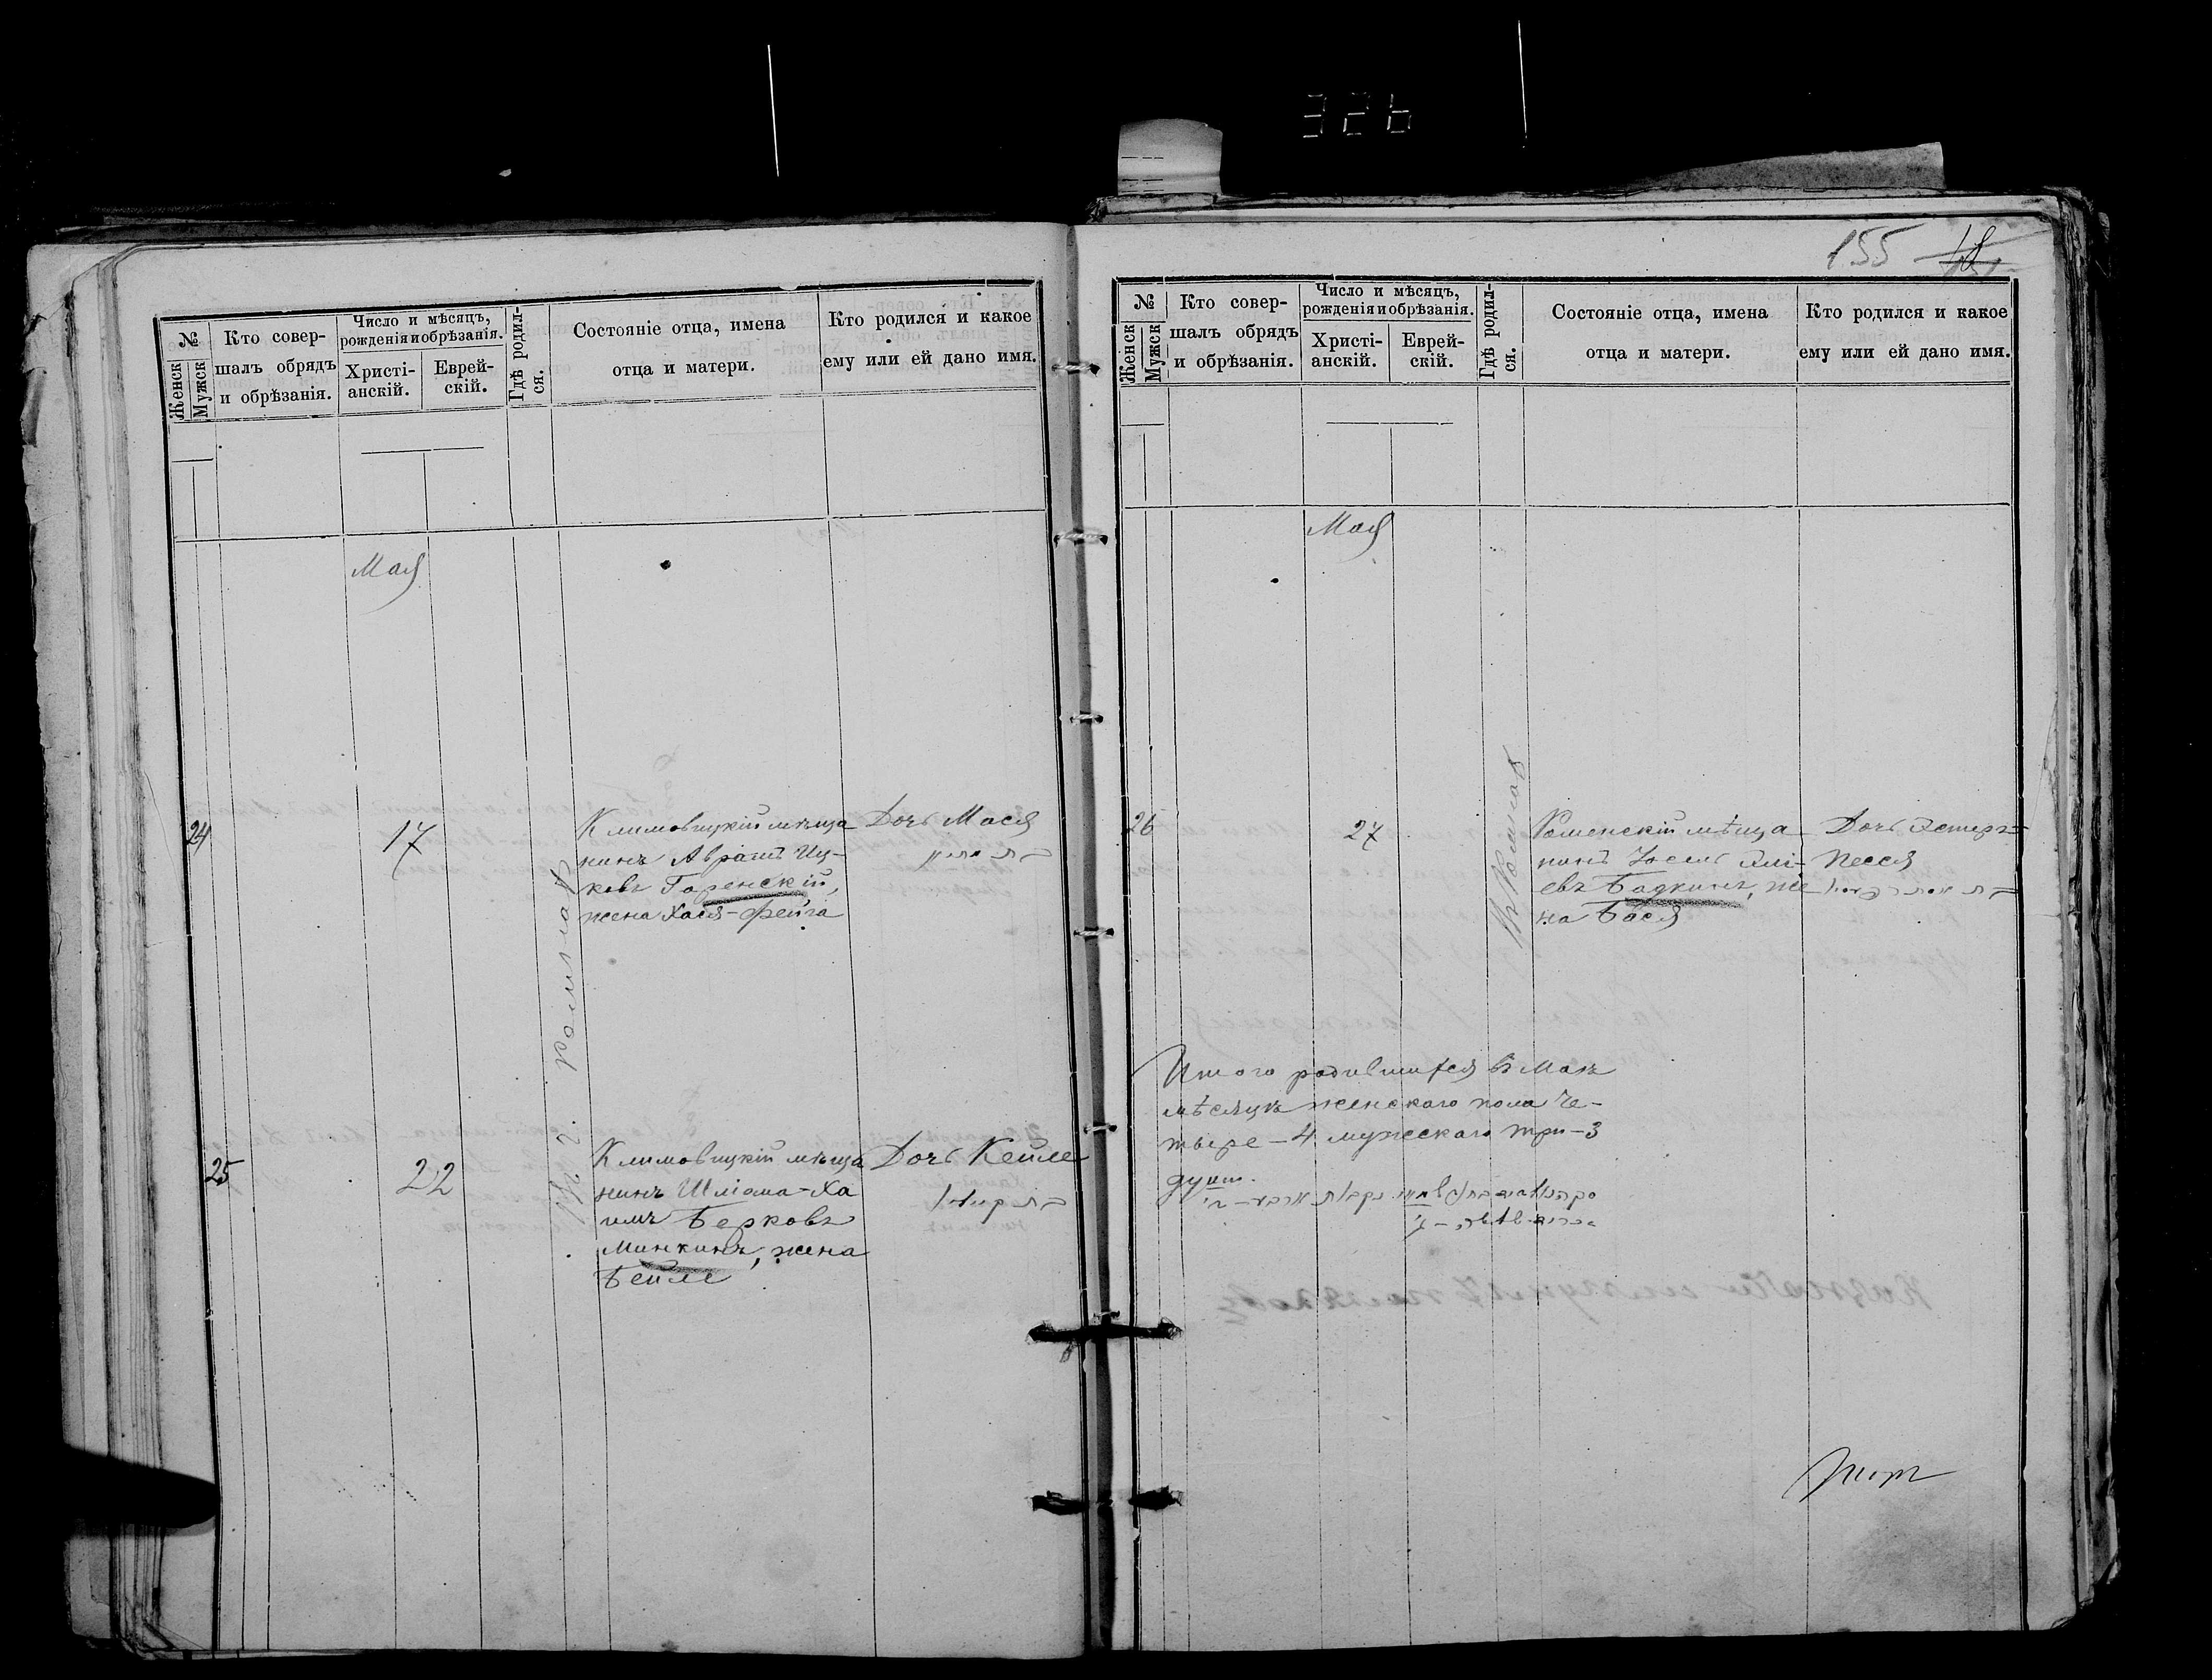 326
№
Женск
Мужск
Кто совер-
шалъ обрядъ
и обрѣзанія.
Число и мѣсяцъ,
рожденія и обрѣзанія.
Христі-
анскій.
Еврей-
скій.
Гдѣ родил-
ся.
Состояніе отца, имена
отца и матери.
Кто родился и какое
ему или ей дано имя.
Мая
24
17
Климовицкій мѣща
нинъ Абрамъ Иц-
ковъ Горенскій,
жена Хася-Фейга
Дочь Мася
25
22
Климовицкій мѣща
нинъ Шліома-Ха
имъ Берковъ
Минкинъ, жена
Бейле
Дочь Кейле
155
№
Женск
Мужск
Кто совер-
шалъ обрядъ
и обрѣзанія.
Число и мѣсяцъ,
рожденія и обрѣзанія.
Христі-
анскій.
Еврей-
скій.
Гдѣ родил-
ся.
Состояніе отца, имена
отца и матери.
Кто родился и какое
ему или ей дано имя.
Мая
26
27
Роменскій мѣща
нинъ Іосель
евъ Бадкинъ, же
на Бася
Дочь Эстеръ-
Песся
Итого родившихся въ Маѣ
мѣсяцѣ женскаго пола че-
тыре-4 мужескаго три-3
душ.